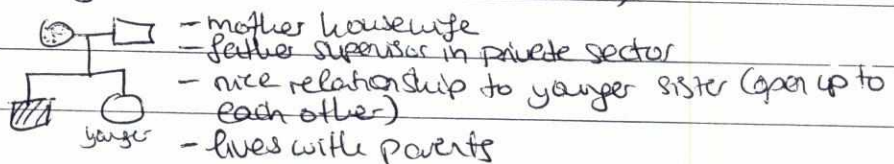 - mother housewife
- father supervisor in private sector
- nice relationship to younger sister (open up to
each other)
younger
- lives with parents